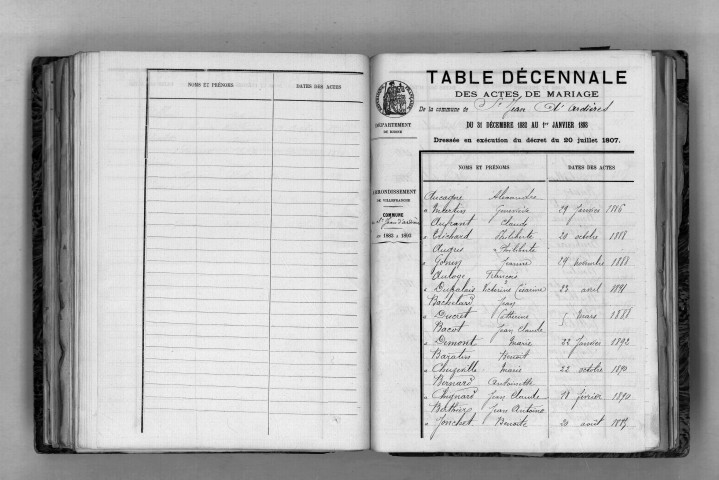 NOMS ET PRÉNOMS DATES DES ACTES
TABLE DÉCENNALE
DES ACTES DE MARIAGE
De la commune de St Jean d'ardières
DU 31 DÉCEMBRE 1882 AU 1er JANVIER 1893
Dressée en exécution du décret du 20 juillet 1807.
DÉPARTEMENT
DU RHONE
ARRONDISSEMENT
DE VILLEFRANCHE
COMMUNE
de St Jean d'ardières
DE 1883 à 1893
NOMS ET PRÉNOMS DATES DES ACTES
Aucagne Alexandre
& Martin Geneviève 29 Janvier 1886
Aufrant Claude
& Trichard Philiberte 20 octobre 1888
Augris Philiberte
& Jeanne 24 novembre 1888
Auloge François
& Dupalais Victorine Césarine 23 avril 1891
Bachelard Jean
& Ducret Catherine 5 mars 1888
Bacot Jean Claude
& Dumont Marie 22 Janvier 1892
Benoit
& Chuzeville Marie 22 octobre 1890
Bernard Antoinette
& Jean Claude 18 février 1890
Berthier Jean Antoine
& Jonchet Benoite 20 août